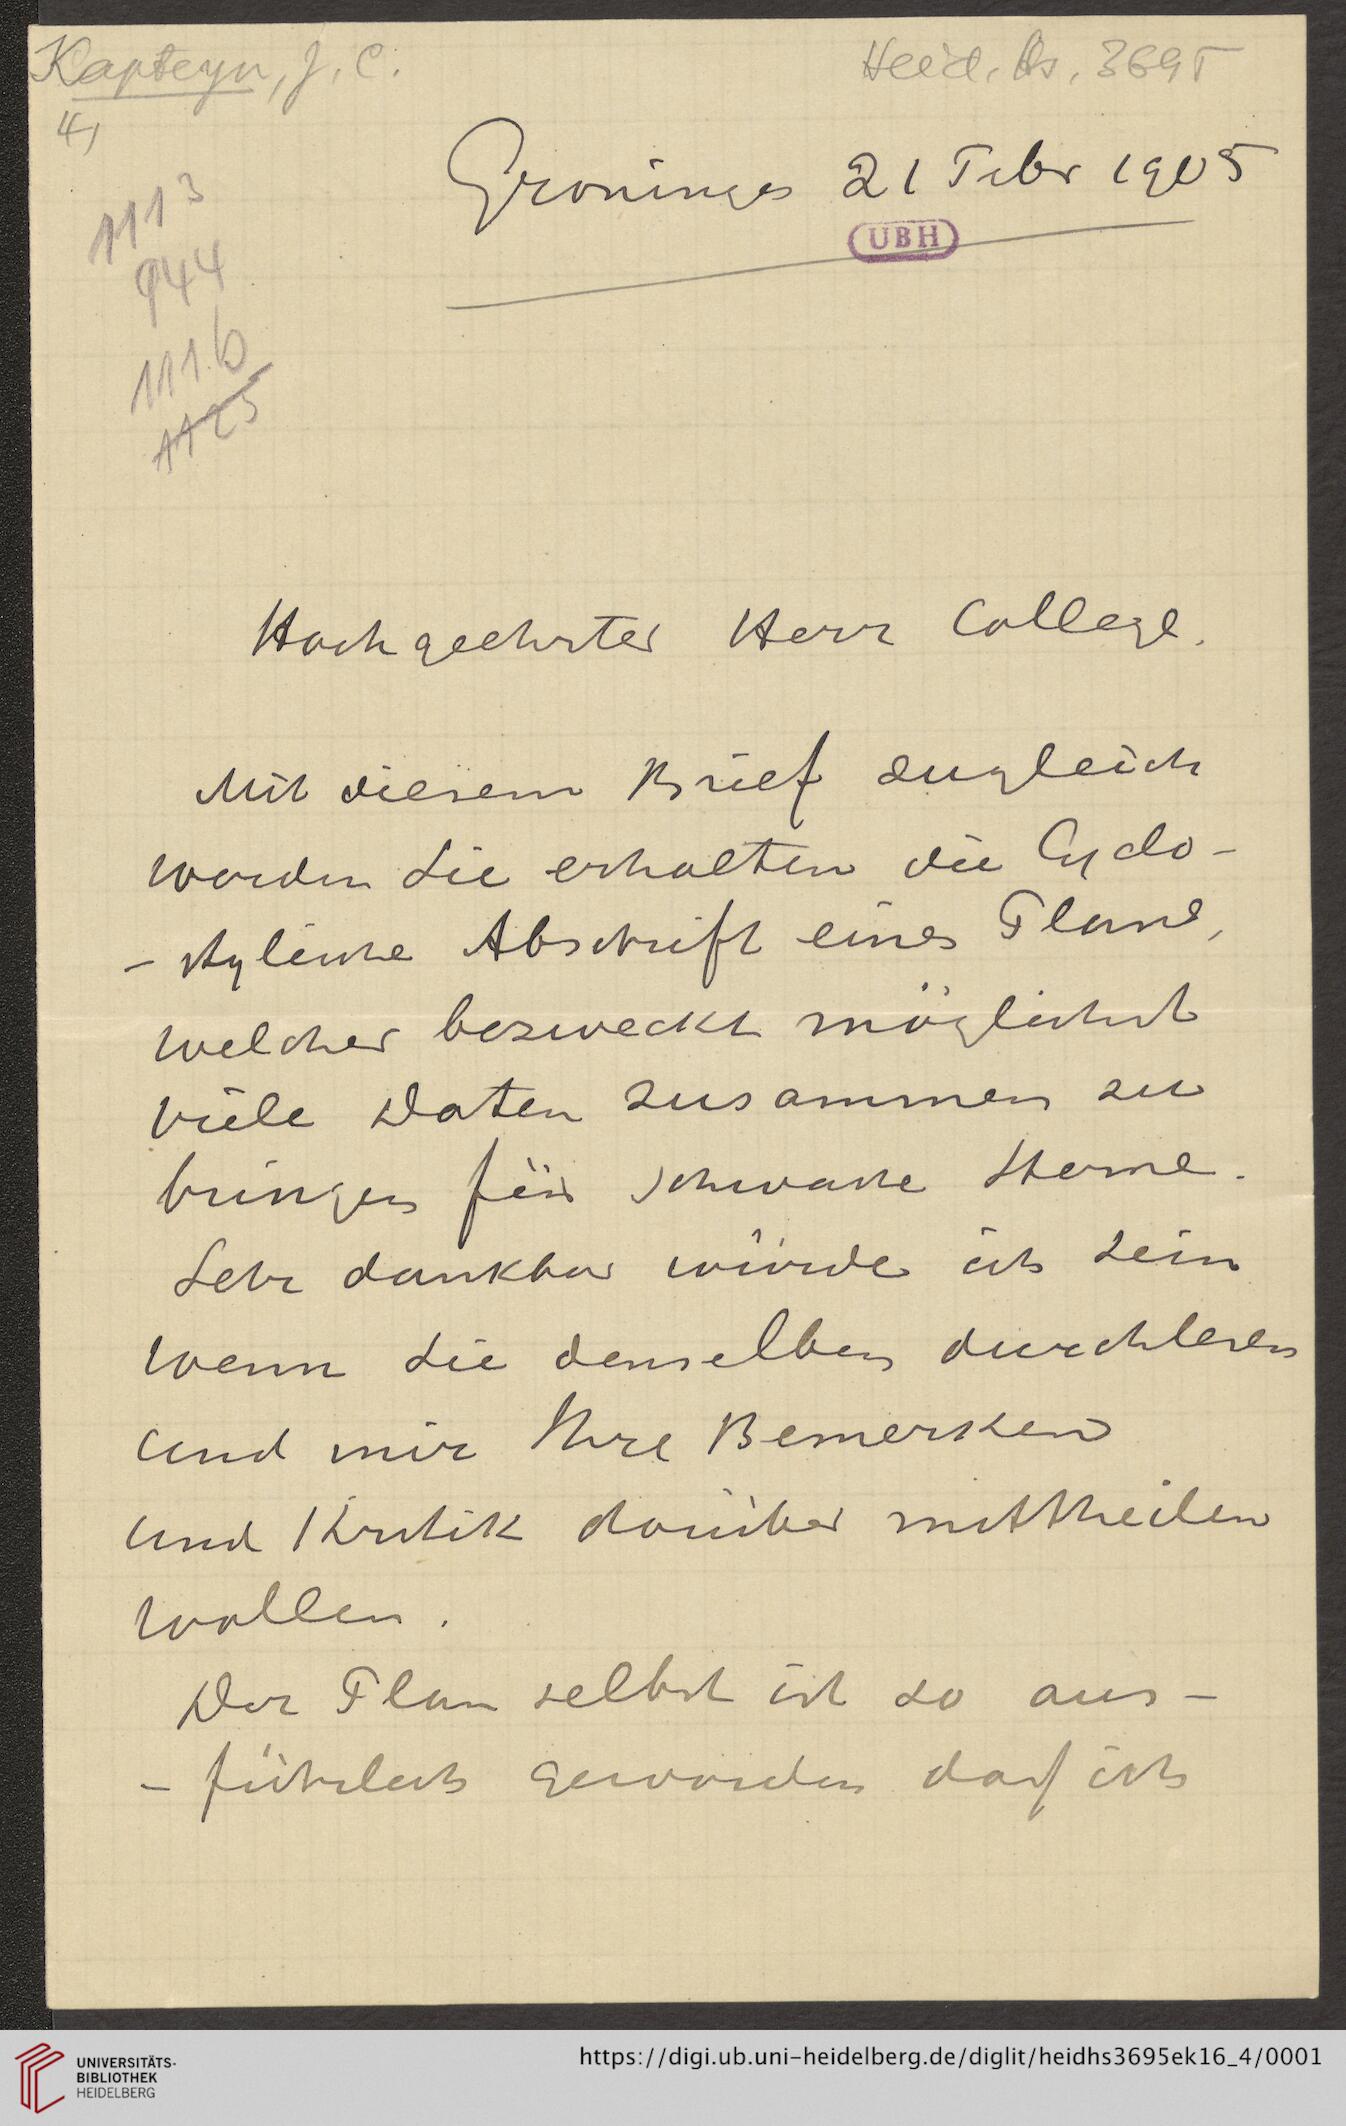 Kapteyn, J. C.
Heid. Hs. 3695
4)
Groningen 21 Febr 1905
UBH
1113
944
111.6
1125
Hochgeehrter Herr College.
Mit diesem Brief zugleich
werden Sie erhalten die Cyclo-
-stylirte Abschrift eines Plans,
welcher bezweckt möglichst
viele Daten zusammen zu
bringen für schwache Sterne.
Sehr dankbar würde ich sein
wenn Sie denselben durchlesen
und mir Ihre Bemerken
und Kritik darüber mittheilen
wollen.
Der Plan selbst ist so aus-
-führlich geworden dass ich
UNIVERSITÄTS-
BIBLIOTHEK
HEIDELBERG
https://digi.ub.uni-heidelberg.de/diglit/heidhs3695ek16_4/0001